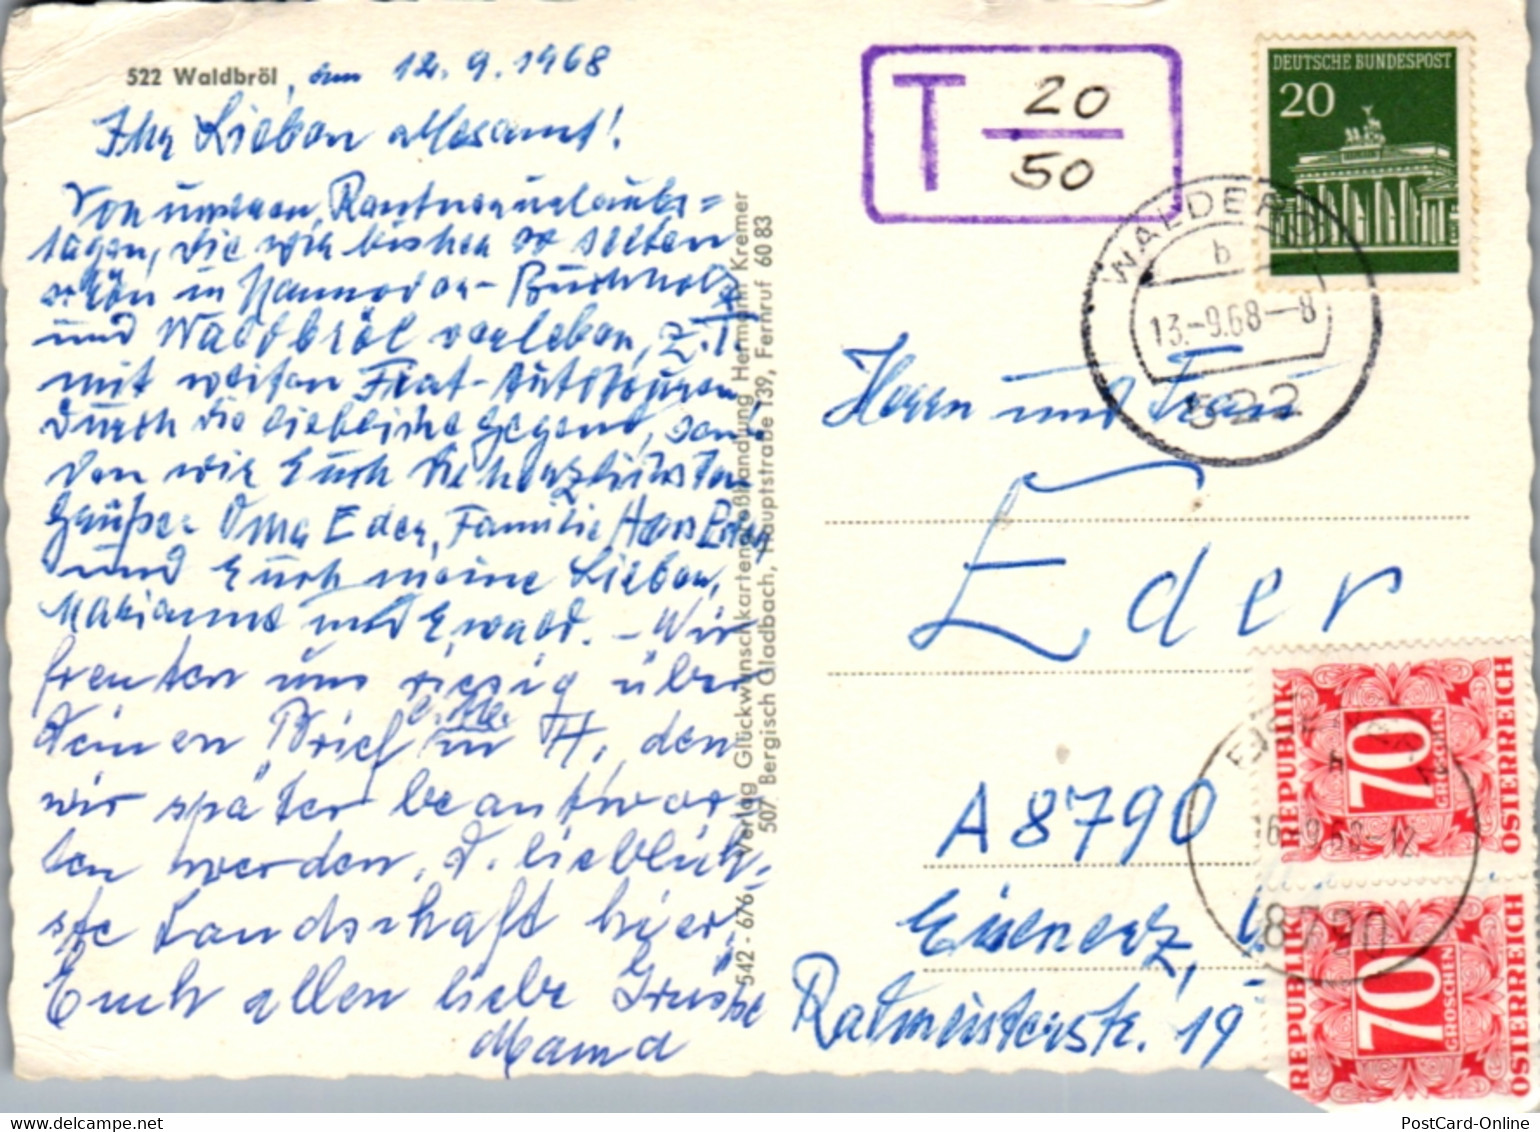 522 Waldbröl, am 12.9.1968
Ihr Lieben allesamt!
Von unseren Rentnerurlaubs=
tagen, die wir bisher so selten
schön in Hannover-Buchholz
und Waldbröl verleben, z.T.
mit weiten Fiat-Autotouren
durch die liebliche Gegend, sen-
den wir Euch die herzlichsten
Grüße. Oma Eder, Familie Hans Eder
und Euch meine Lieben,
Marianne und Ewald. – Wir
freuten uns riesig über
Deinen Brief in H, den
wir später beantwor-
ten werden. D. lieblich-
ste Landschaft hier.
Euch allen liebe Grüsse
Mama
542 - 676 Verlag Glückwunschkartengroßhandlung Hermann Kremer
507 Bergisch Gladbach, Hauptstraße 139, Fernruf 60 83
T 20
50
DEUTSCHE BUNDESPOST
20
b
13.-9.68-8
522
Herrn und Frau
Eder
A 8790
Eisenerz,
Ratmeisterstr. 19
REPUBLIK
70
GROSCHEN
ÖSTERREICH
8790
REPUBLIK
70
GROSCHEN
ÖSTERREICH
PostCard-Online
www.delcampe.net